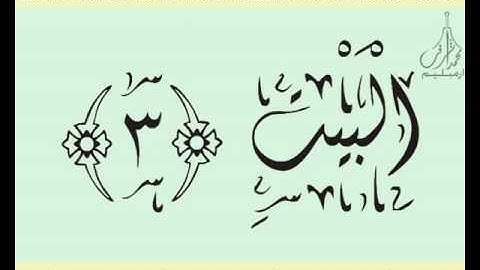 الْبَيْتِ (٣)